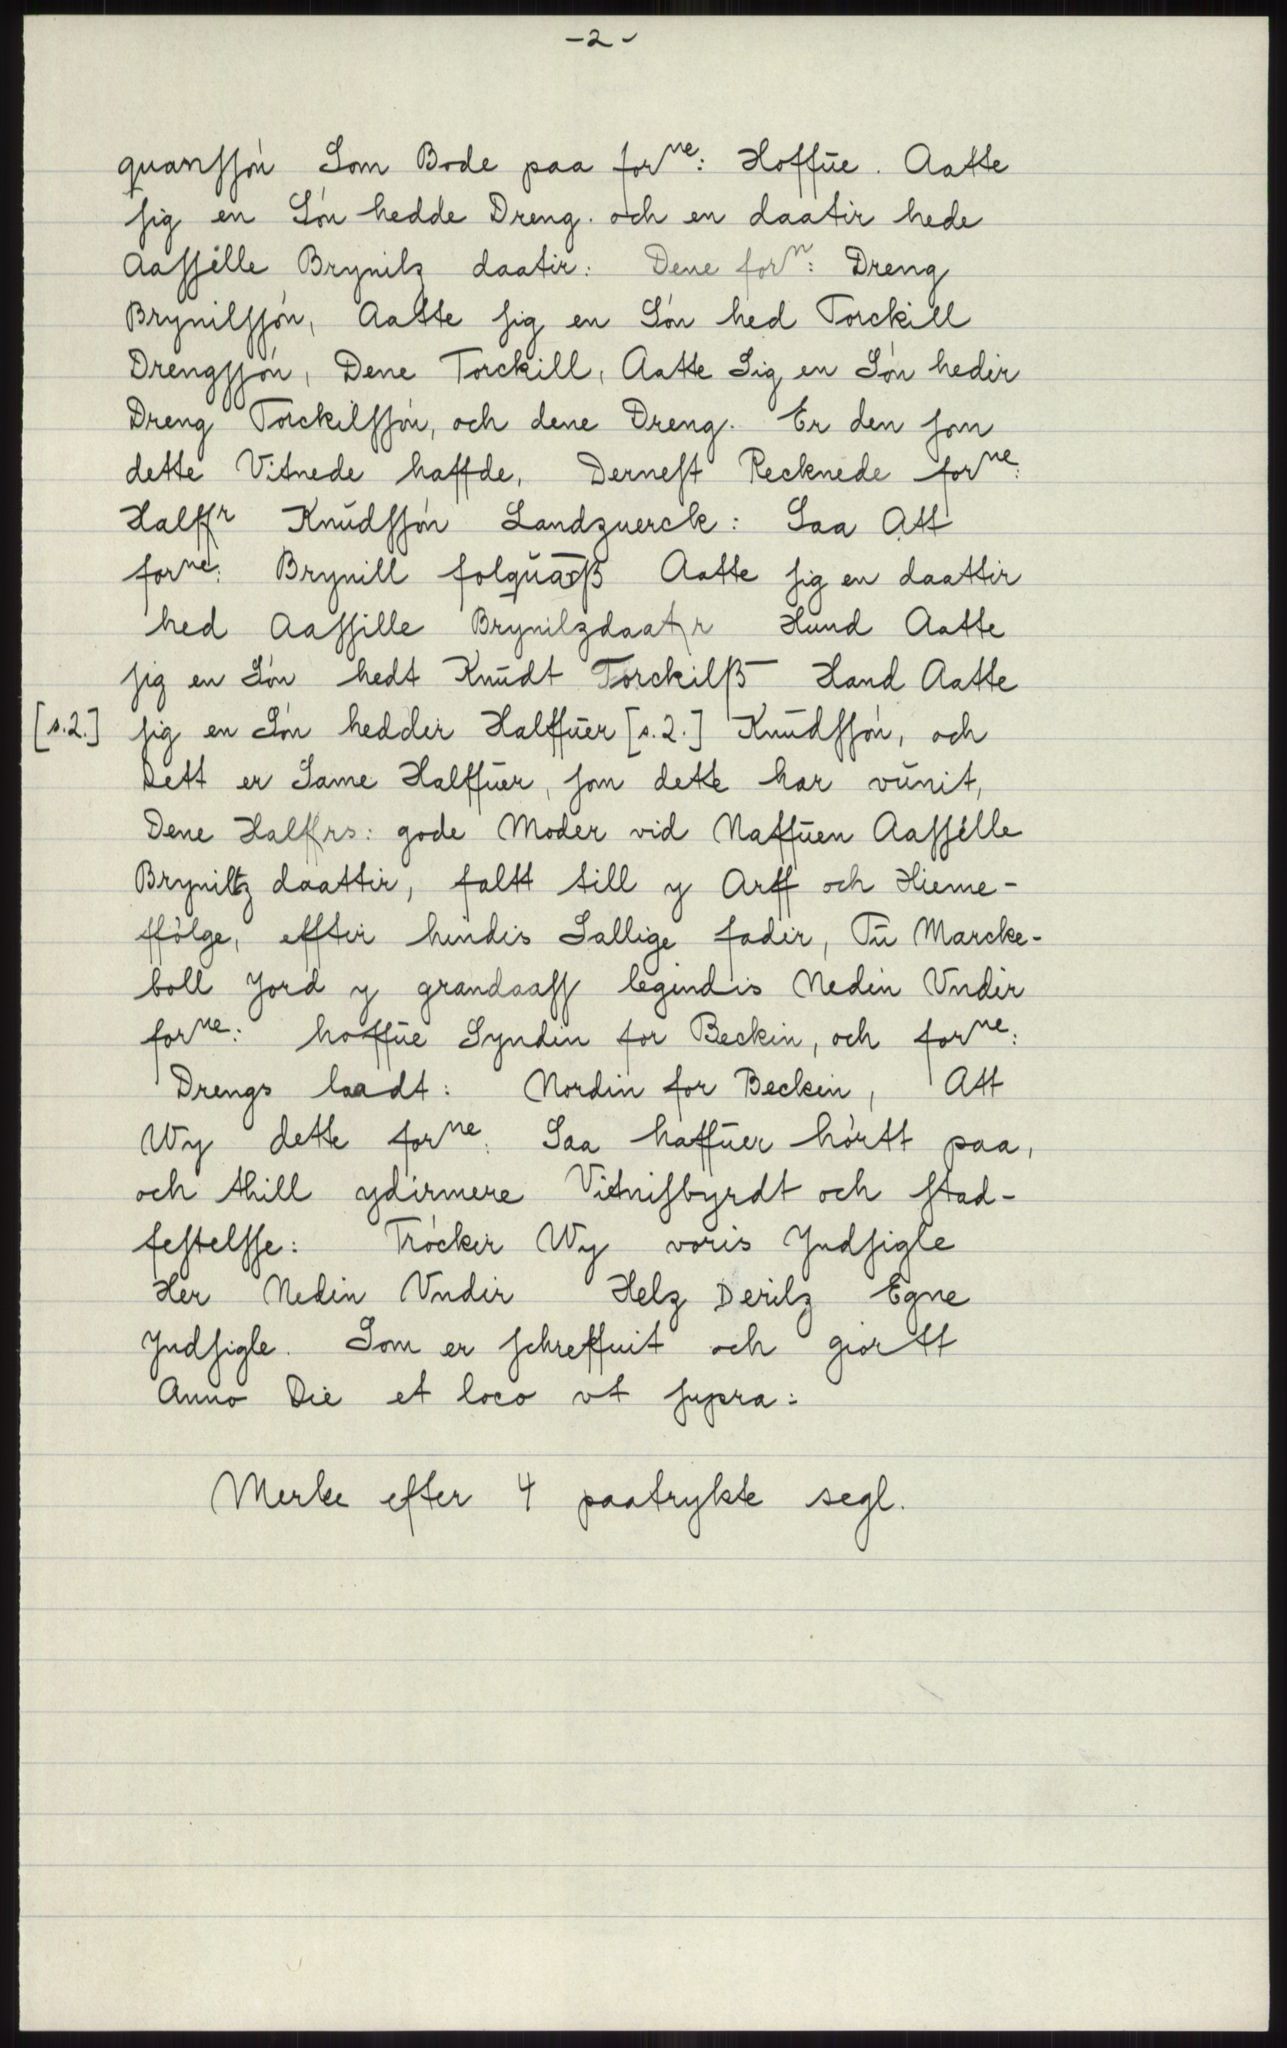 -2-
quanssón Som Bode paa forne: Hoffŭe. Aatte
sig en Són hedde Dreng. och en daatir hede
Aassille Brynilz daatir: Dene forn: Dreng
Brynilssón, Aatte sig en Són hed Torckill
Drengssón, Dene Torckill, Aatte Sig en Són hedir
Dreng Torckilssón, och dene Dreng. Er den som
dette Vitnede haffde, Dernest Recknede forne:
Halffr Knŭdssón Landzuerck: Saa Att
forne: Brynill folqŭarß Aatte sig en daattir
hed Aassille Brynilzdaatr Hund Aatte
sig en Són hedt Knŭdt Torckilß Hand Aatte
[s.2.] sig en Són hedder Halffŭer [s.2.] Knŭdssón, och
Dett er Same Halffŭer, som dette har vŭnit,
Dene Halffrs: gode Moder vid Naffŭen Aassille
Bryniltz daattir, faltt till y Arff och Hieme-
ffólge, efftir hindis Sallige fadir, Tŭ Marcke-
boll Jord y grandaaff legindis Nedin Vndir
forne: hoffŭe Syndin for Beckin, och forne:
Drengs laadt: Nordin for Beckin, Att
Wy dette forne: Saa haffŭer hórtt paa,
och thill ydirmere Vitnisbyrdt och stad-
festelsse: Trócker Wy voris Yndsigle
Her Nedin Vndir Helz Derilz Egne
Yndsigle. Som er schreffuit och giortt
Anno Die et loco vt supra:
Merke efter 4 paatrykte segl.